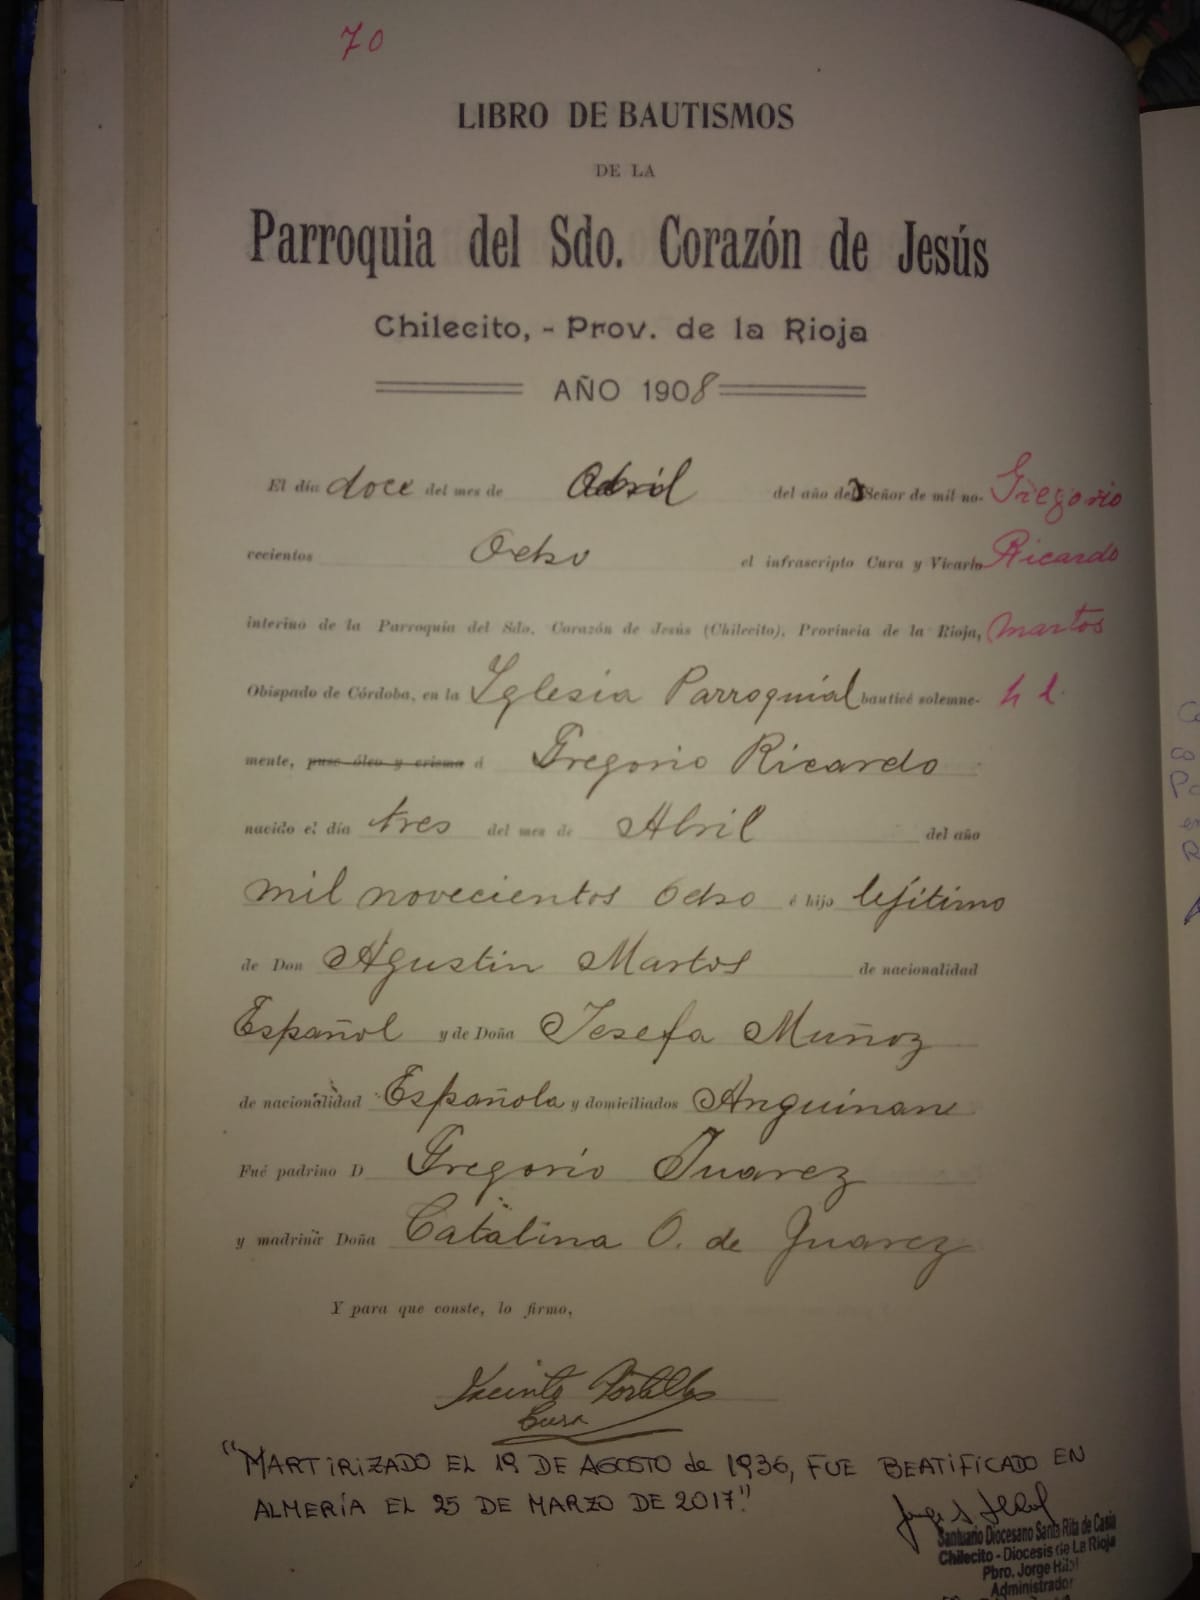 70
LIBRO DE BAUTISMOS
DE LA
Parroquia del Sdo. Corazón de Jesús
Chilecito, - Prov. de la Rioja
AÑO 1908
El día doce del mes de Abril del año del Señor de mil no- Gregorio
vecientos Ocho el infrascripto Cura y Vicario Ricardo
interino de la Parroquia del Sdo. Corazón de Jesús (Chilecito), Provincia de la Rioja, Martos
Obispado de Córdoba, en la Yglesia Parroquial bauticé solemne- h l.
mente, puse óleo y crisma á Gregorio Ricardo
nacido el día tres del mes de Abril del año
mil novecientos Ocho é hijo lejítimo
de Don Agustin Martos de nacionalidad
Español y de Doña Josefa Muñoz
de nacionalidad Española y domiciliados Anguinan
Fué padrino D Gregorio Juarez
y madrina Doña Catalina O. de Juarez
Y para que conste, lo firmo,
Jacinto
Cura
"MARTIRIZADO EL 19 DE AGOSTO de 1936, FUE BEATIFICADO EN
ALMERÍA EL 25 DE MARZO DE 2017."
Santuario Diocesano Santa Rita de Casia
Chilecito - Diocesis de La Rioja
Pbro. Jorge
Administrador